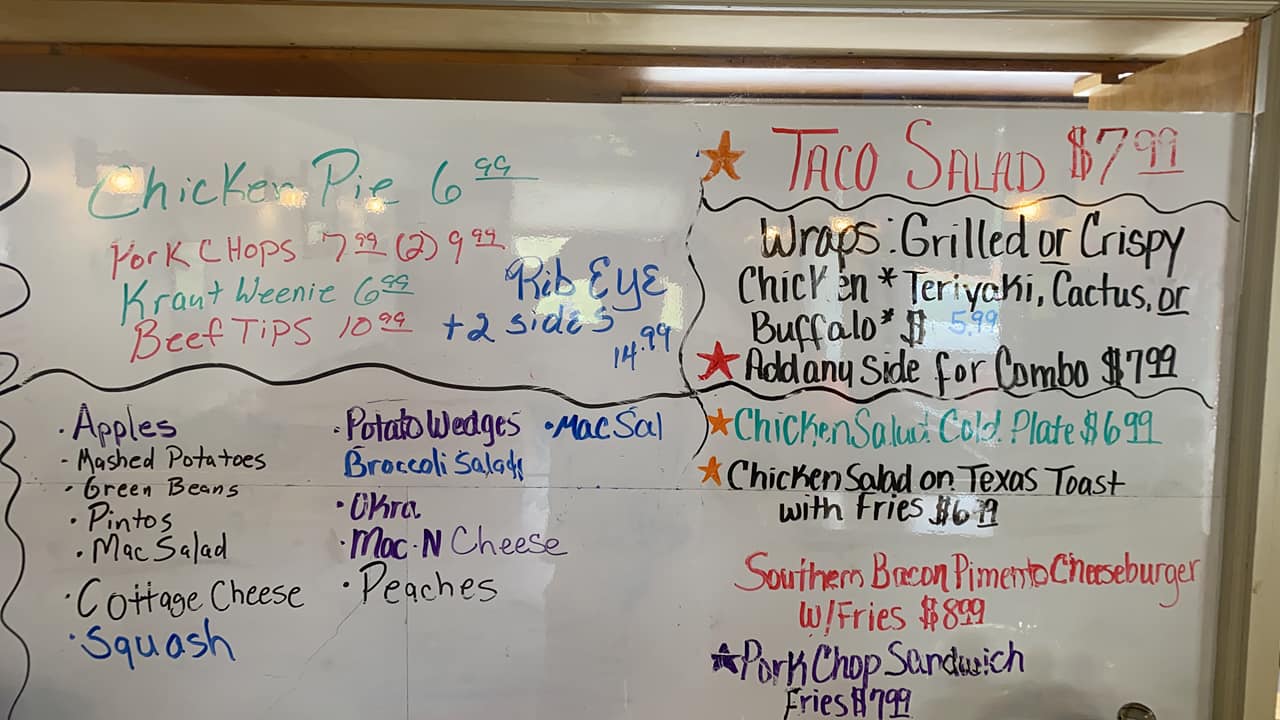 Chicken Pie 6 99
Pork CHops 7 99 (2) 9 99
Kraut Weenie 6 99
Beef Tips 10 99
Rib Eye
+2 sides
14.99
· Apples
- Mashed Potatoes
· Green Beans
· Pintos
· Mac Salad
· Cottage Cheese
· Squash
· Potato Wedges
Broccoli Salads
· Okra
· Mac-N Cheese
· Peaches
· Mac Sal
★ Taco Salad $7 99
Wraps: Grilled or Crispy
Chicken * Teriyaki, Cactus, or
Buffalo * $ 5.99
★ Add any Side for Combo $7 99
★ Chicken Salad Cold Plate $6 99
★ Chicken Salad on Texas Toast
with Fries $6 99
Southern Bacon Pimento Cheeseburger
W/Fries $8 99
★ Pork Chop Sandwich
Fries $7 99